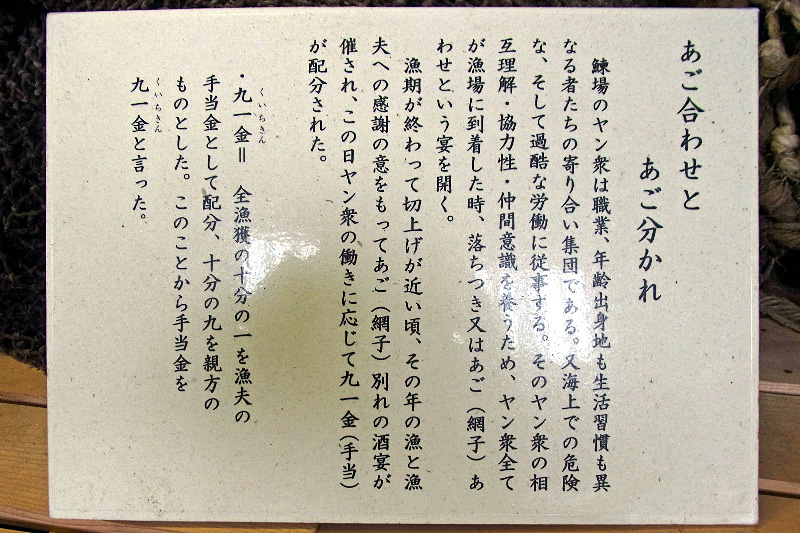 あご合わせと
あご分かれ
鰊場のヤン衆は職業、年齢出身地も生活習慣も異
なる者たちの寄り合い集団である。又海上での危険
な、そして過酷な労働に従事する。そのヤン衆の相
互理解・協力性・仲間意識を養うため、ヤン衆全て
が漁場に到着した時、落ちつき又はあご（網子）あ
わせという宴を開く。
漁期が終わって切上げが近い頃、その年の漁と漁
夫への感謝の意をもってあご（網子）別れの酒宴が
催され、この日ヤン衆の働きに応じて九一金（手当）
が配分された。
・九一金＝　全漁獲の十分の一を漁夫の
くいちきん
手当金として配分、十分の九を親方の
ものとした。このことから手当金を
九一金と言った。
くいちきん